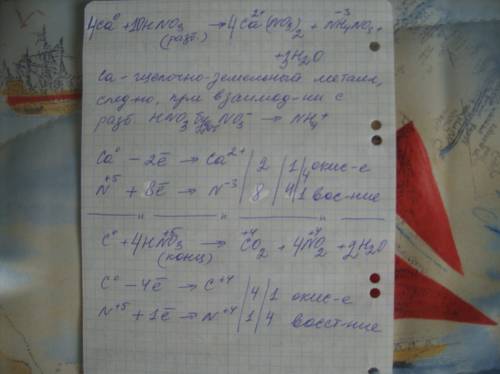 4Ca⁰ + 10HNO₃ → 4Ca²⁺(NO₃)₂ + N⁻³H₄NO₃ +
(разб.)
+ 3H₂O
Ca - щелочно-земельный металл,
следно, при взаимод-нии с
разб. HNO₃ NO₃⁻ → NH₄⁺
Ca⁰ - 2e̅ → Ca²⁺ | 2 | 1 | 4 окис-е
N⁺⁵ + 8e̅ → N⁻³ | 8 | 4 | 1 вос-ние
C⁰ + 4HN⁺⁵O₃ → C⁺⁴O₂ + 4N⁺⁴O₂ + 2H₂O
(конц)
C⁰ - 4e̅ → C⁺⁴ | 4 | 1 окис-е
N⁺⁵ + 1e̅ → N⁺⁴ | 1 | 4 восст-ние